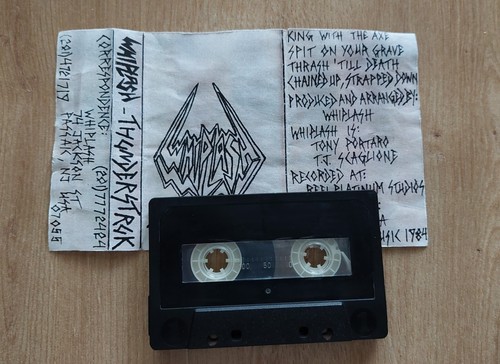 WHIPLASH - THUNDERSTRUK
CORRESPONDENCE:
WHIPLASH
JACKSON ST
PASSAIC, NJ USA
07055
WHIPLASH
KING WITH THE AXE
SPIT ON YOUR GRAVE
THRASH 'TILL DEATH
CHAINED UP, STRAPPED DOWN
PRODUCED AND ARRANGED BY:
WHIPLASH
WHIPLASH IS:
TONY PORTARO
T.J. SCAGLIONE
RECORDED AT:
REEL PLATINUM STUDIOS
1984
50